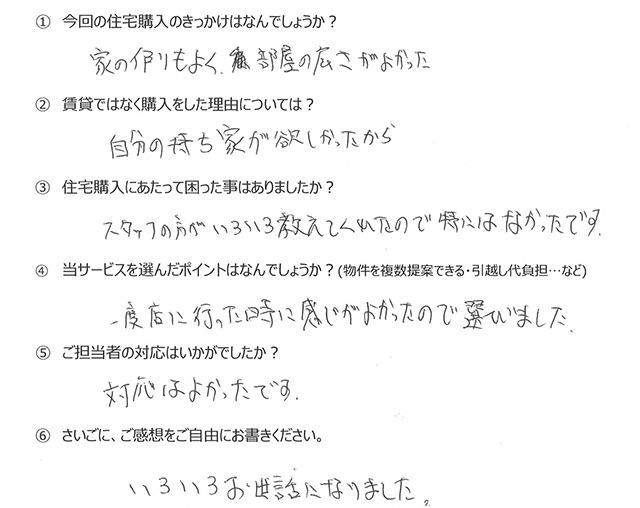 ① 今回の住宅購入のきっかけはなんでしょうか？
家の作りもよく、部屋の広さがよかった
② 賃貸ではなく購入をした理由については？
自分の持ち家が欲しかったから
③ 住宅購入にあたって困った事はありましたか？
スタッフの方がいろいろ教えてくれたので特にはなかったです。
④ 当サービスを選んだポイントはなんでしょうか？(物件を複数提案できる・引越し代負担…など)
一度店に行った時に感じがよかったので選びました。
⑤ ご担当者の対応はいかがでしたか？
対応はよかったです。
⑥ さいごに、ご感想をご自由にお書きください。
いろいろお世話になりました。